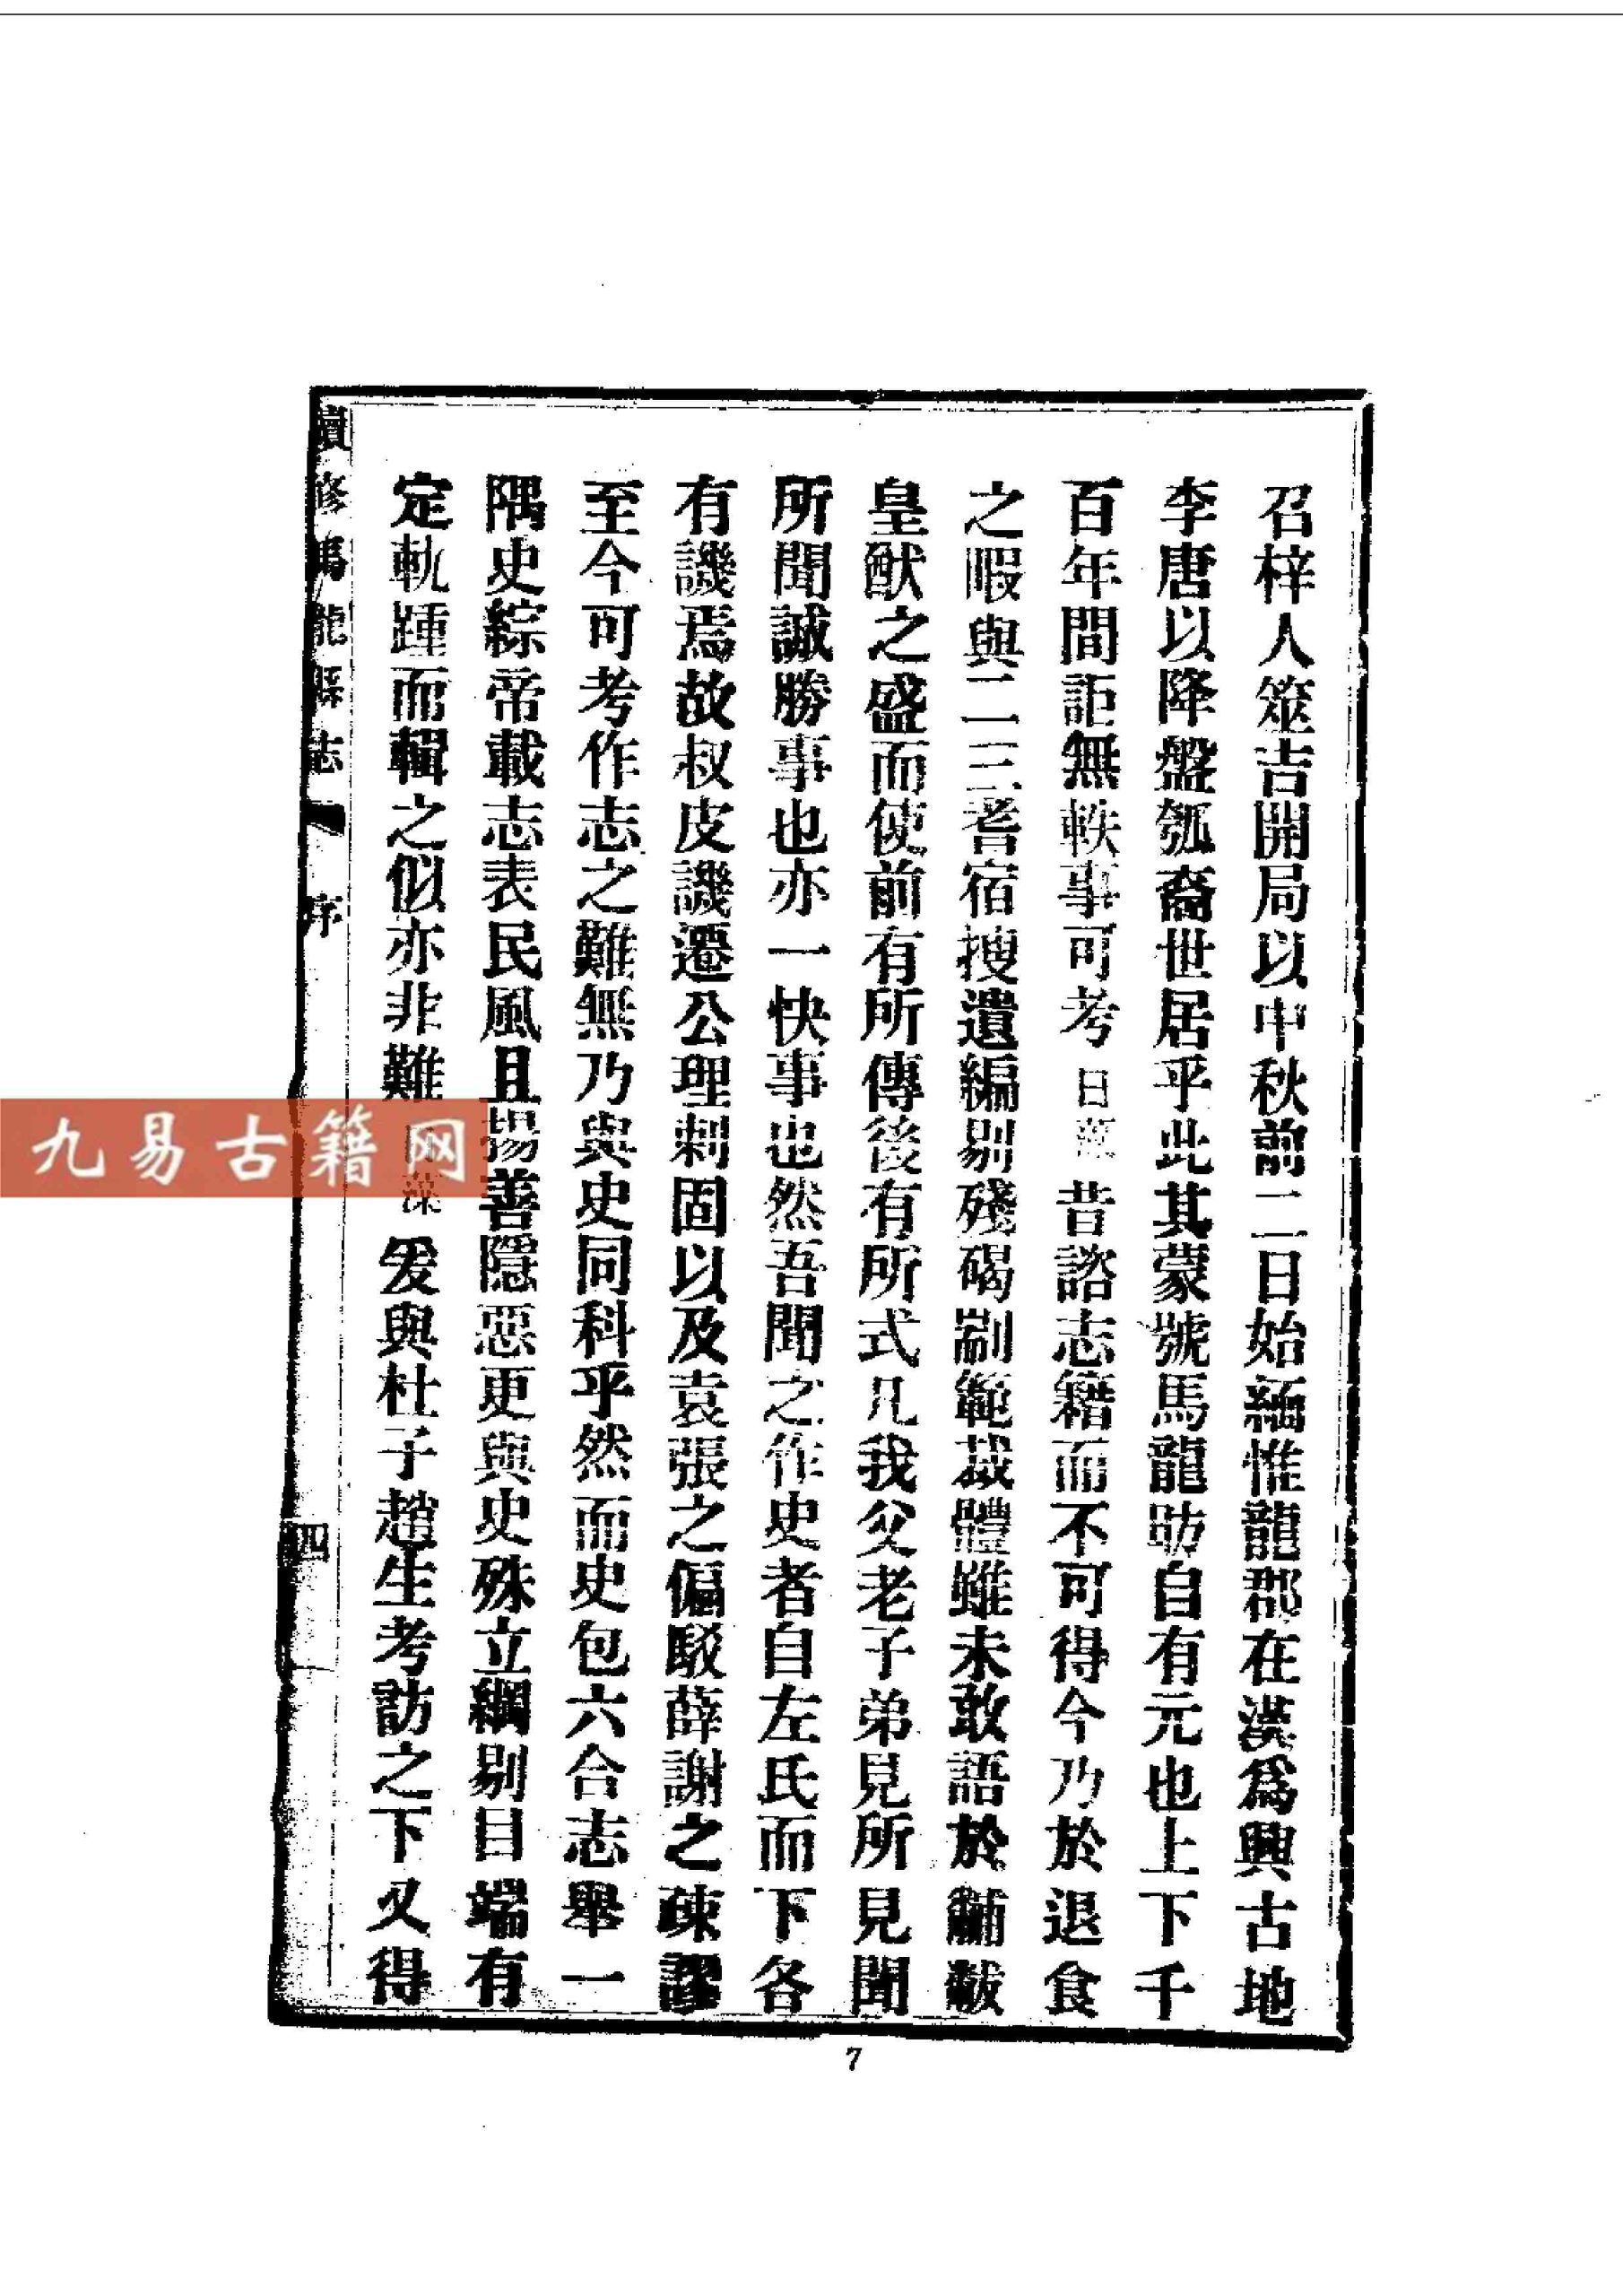 召梓人筮吉開局以中秋前二日始緬惟龍郡在漢爲興古地
李唐以降盤瓠裔世居乎此其蒙號馬龍昉自有元也上下千
百年間詎無軼事可考日藻昔諮志籍而不可得今乃於退食
之暇與二三耆宿搜遺編剔殘碣劚範裁體雖未敢語於黼黻
皇猷之盛而使前有所傳後有所式凡我父老子弟見所見聞
所聞誠勝事也亦一快事也然吾聞之作史者自左氏而下各
有譏焉故叔皮譏遷公理刺固以及袁張之偏駁薛謝之疎謬
至今可考作志之難無乃與史同科乎然而史包六合志舉一
隅史綜帝載志表民風且揚善隱惡更與史殊立綱剔目端有
定軌踵而輯之似亦非難日藻爰與杜子趙生考訪之下又得
續修馬龍縣志 序 四
九易古籍网
7